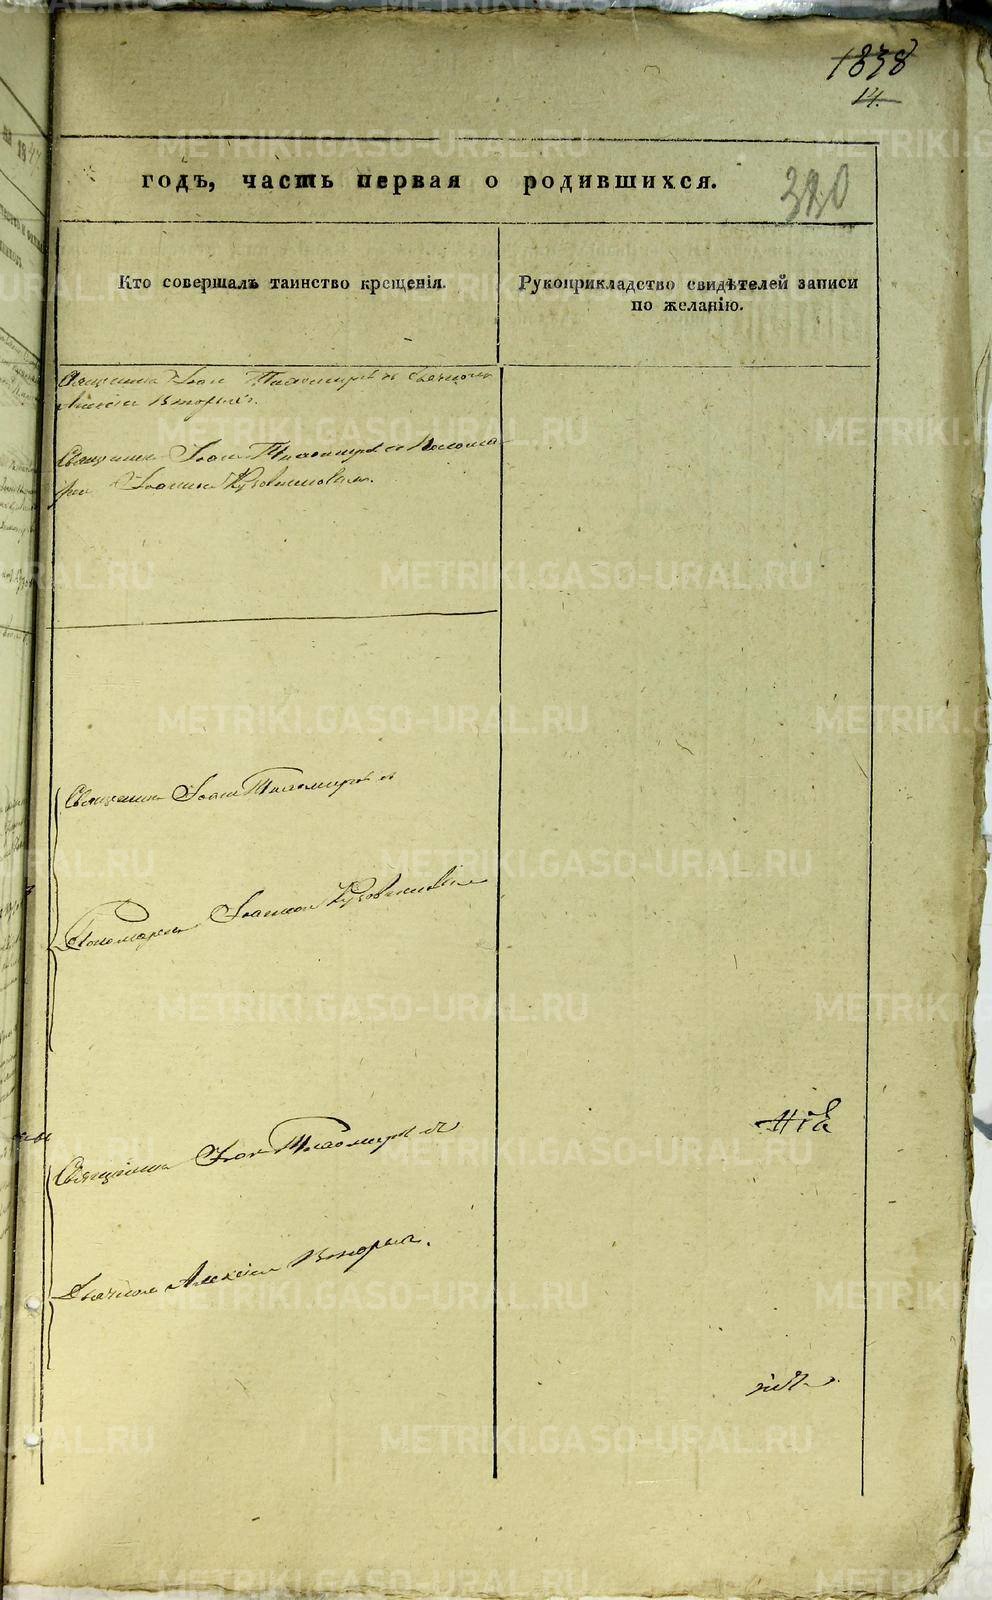 1838
14.
годъ, часть первая о родившихся.
330
Кто совершалъ таинство крещенія.
Рукоприкладство свидѣтелей записи
по желанію.
Священникъ Іоан Тихомировъ съ дьячкомъ
Алексіем Вторыхъ.
Священникъ Іоан Тихомировъ съ Понома
рем Іоанном
Священникъ Іоан Тихомировъ съ
Пономарем Іоанном
Священникъ Іоан Тихомировъ съ
Дьячком Алексіем Вторых.
METRIKI.GASO-URAL.RU